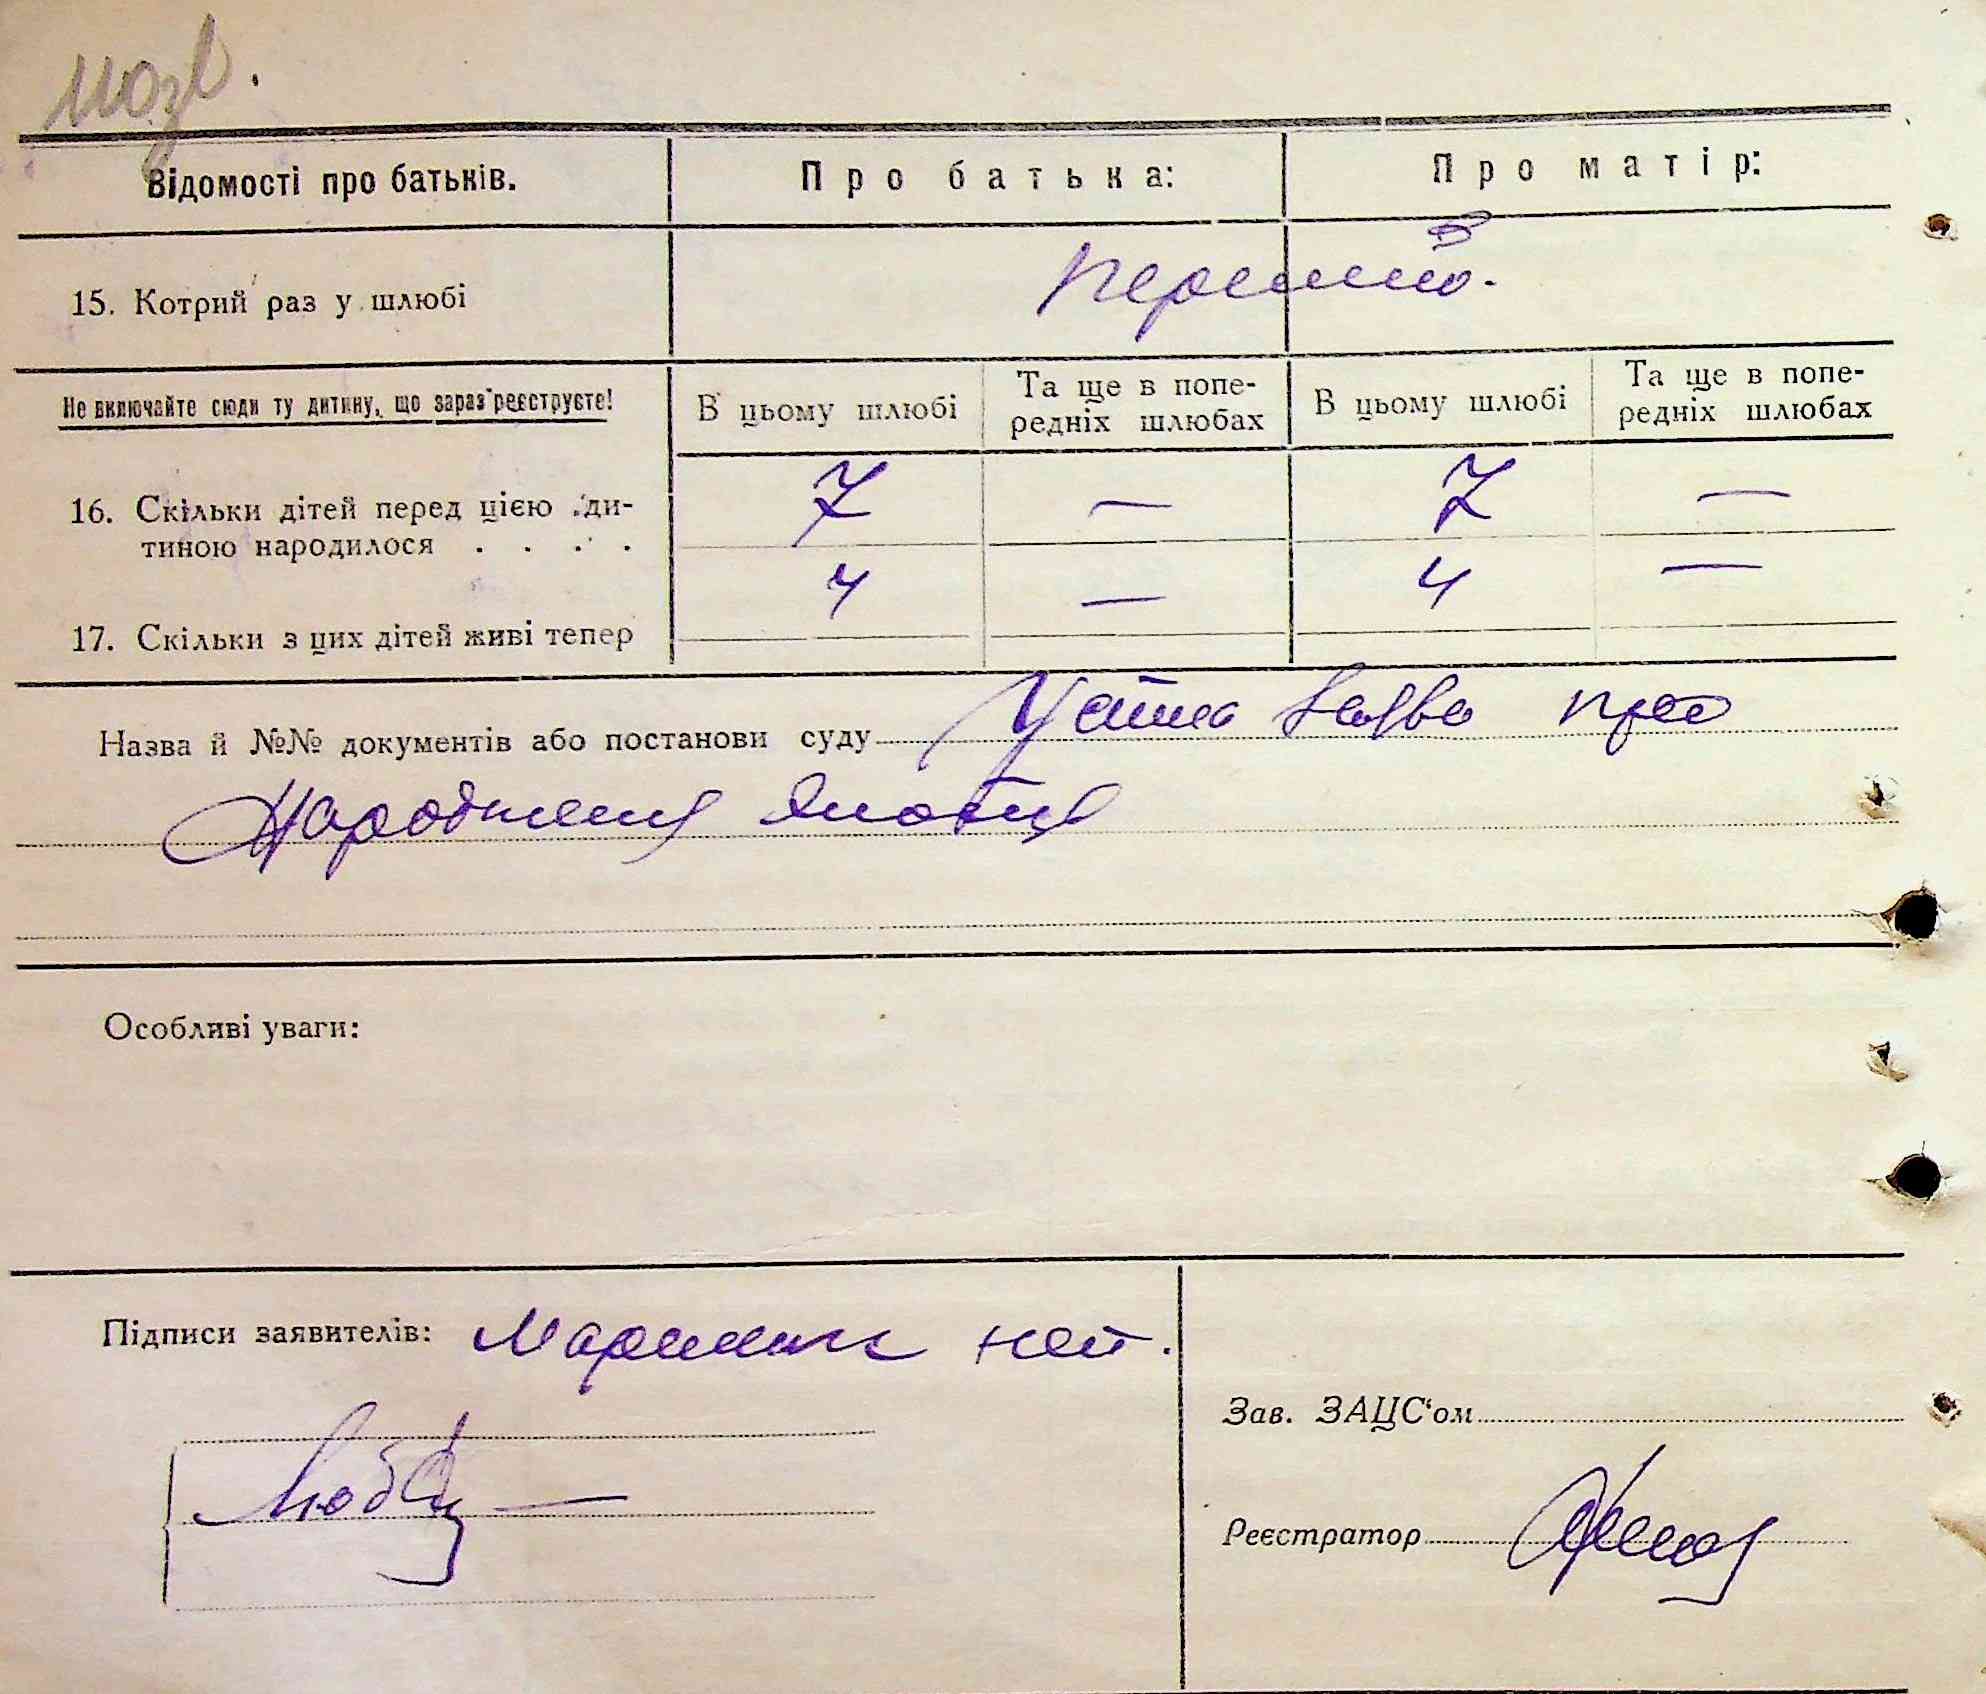 Відомості про батьків.
Про батька:
Про матір:
15. Котрий раз у шлюбі
первий.
Не включайте сюди ту дитину, що зараз реєструєте!
В цьому шлюбі
Та ще в попе-
редніх шлюбах
В цьому шлюбі
Та ще в попе-
редніх шлюбах
16. Скільки дітей перед цією ди-
тиною народилося . . . .
7 — 7 —
17. Скільки з цих дітей живі тепер
4 — 4 —
Назва й №№ документів або постанови суду Устна заява про
народження
Особливі уваги:
Підписи заявителів:
Зав. ЗАЦС'ом
Реєстратор